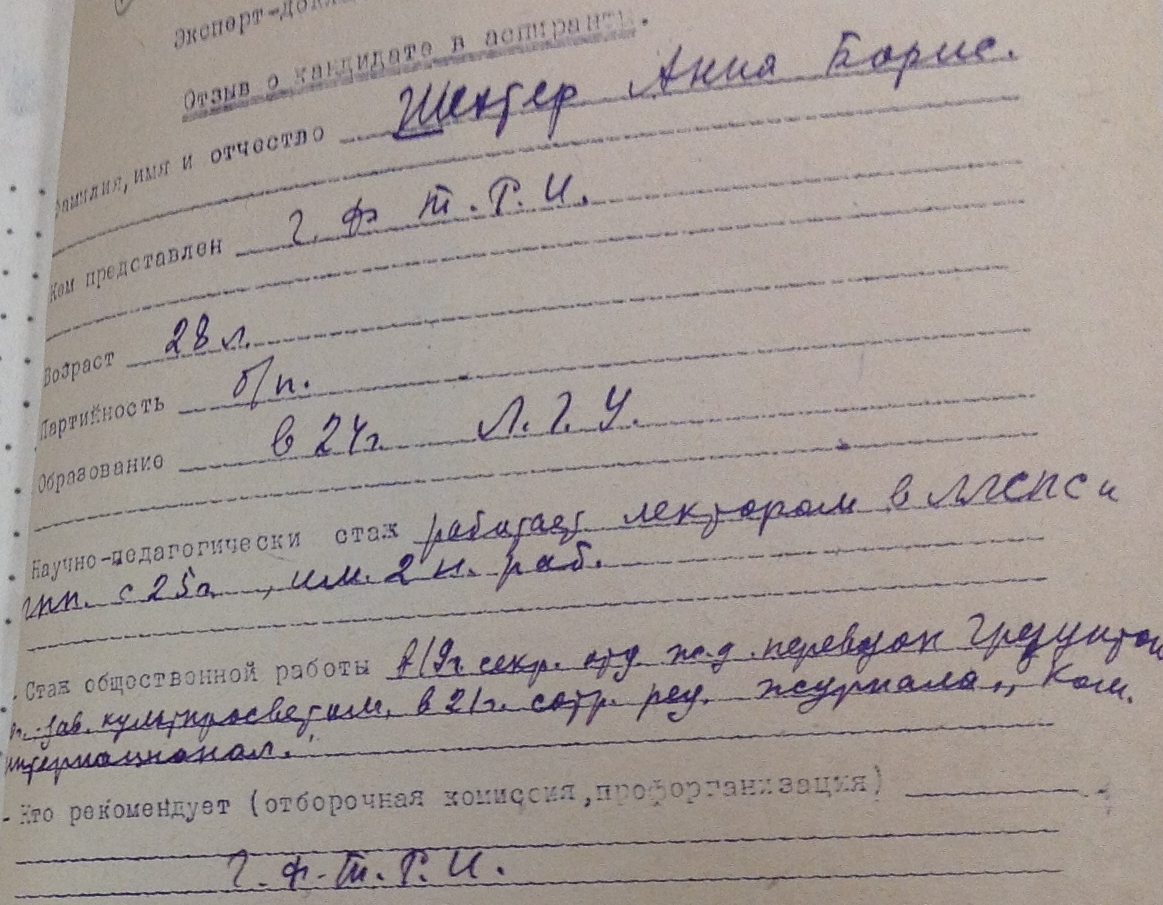 Эксперт-докла
Отзыв о кандидате в аспиранты.
фамилия, имя и отчество Шехтер Анна Борис.
Кем представлен Г. Ф. Т. Р. И.
Возраст 28 л.
Партийность б/п.
Образование в 24 г. Л. Г. У.
Научно-педагогически стаж работает лектором в ЛГСПС и
с 25 г., им. 2 н. раб.
Стаж общественной работы в 19 г. секр. отд. ж.д. перевозок
зав. культпросветом, в 21 г. сотр. ред. журнала „Ком.
интернационал."
Кто рекомендует (отборочная комиссия, профорганизация)
Г. Ф. Т. Р. И.